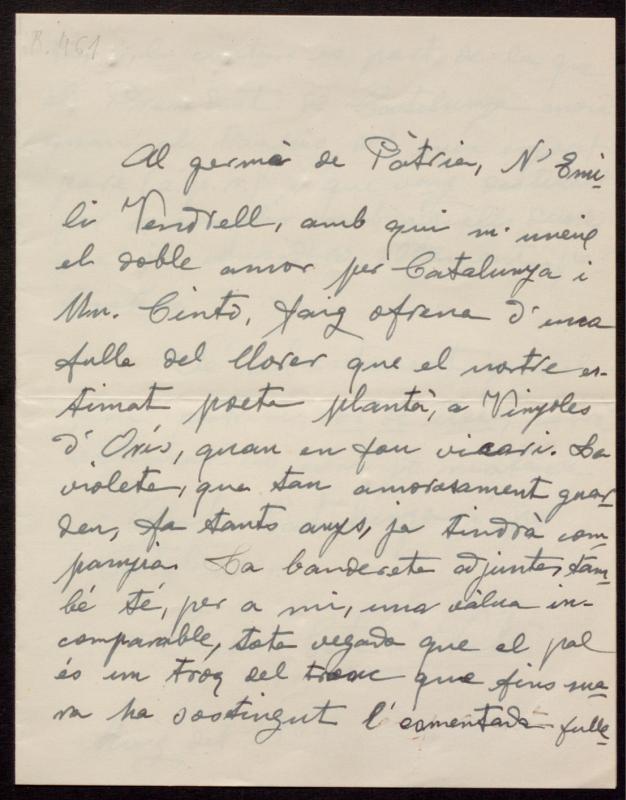 R. 461
Al germà de Pàtria, N'Emi-
li Vendrell, amb qui m'uneix
el doble amor per Catalunya i
Mn. Cinto, faig ofrena d'una
fulla del llorer que el nostre es-
timat poeta plantà, a Vinyoles
d'Orís, quan en fou vicari. La
violeta, que tan amorosament guar-
den, fa tants anys, ja tindrà com-
panyia. La bandereta adjunta, tam-
bé té, per a mi, una vàlua in-
comparable, tota vegada que el pal
és un troç del tronc que fins sua-
ra ha sostingut l'esmentada fulla